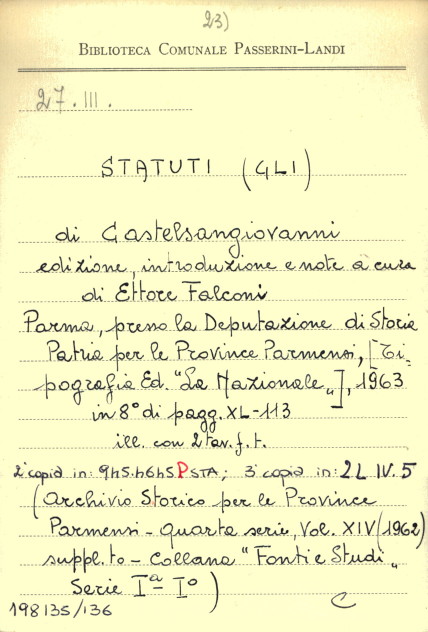 23)
BIBLIOTECA COMUNALE PASSERINI-LANDI
27.III.
STATUTI (GLI)
di Castelsangiovanni
edizione, introduzione e note a cura
di Ettore Falconi
Parma, presso la Deputazione di Storia
Patria per le Province Parmensi, [Ti-
pografia Ed. "La Nazionale„], 1963
in 8° di pagg. XL-113
ill. con 2 tav. f. t.
2ª copia in: 945.4645 P STA; 3ª copia in: 2L IV. 5
(Archivio Storico per le Province
Parmensi - quarta serie, Vol. XIV (1962)
suppl.to - Collana "Fonti e Studi„
Serie Iª - I°)
198135/136 C